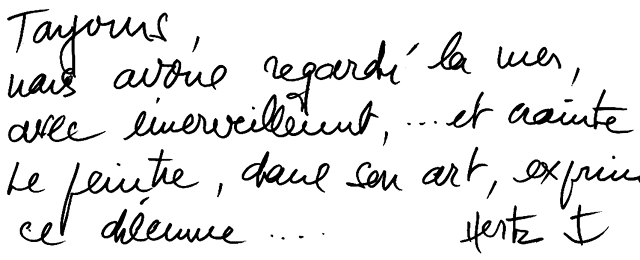 Toujours,
nous avons regardé la mer,
avec émerveillement, ... et crainte
Le peintre, dans son art, exprim
ce dilemme ....
Hertz